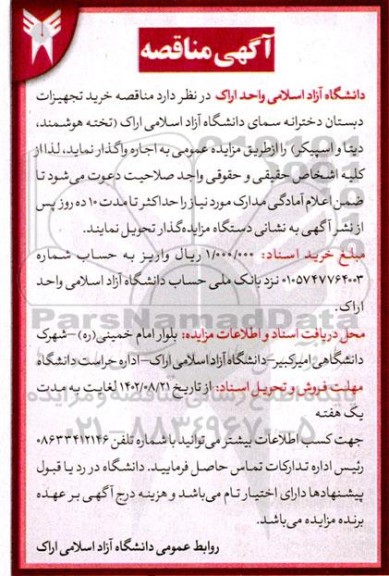 آگهی مناقصه
دانشگاه آزاد اسلامی واحد اراک در نظر دارد مناقصه خرید تجهیزات
دبستان دخترانه سمای دانشگاه آزاد اسلامی اراک (تخته هوشمند،
دیتا و اسپیکر) را ازطریق مزایده عمومی به اجاره واگذار نماید، لذا از
کلیه اشخاص حقیقی و حقوقی واجد صلاحیت دعوت می‌شود تا
ضمن اعلام آمادگی مدارک مورد نیاز را حداکثر تا مدت ۱۰ ده روز پس
از نشر آگهی به نشانی دستگاه مزایده‌گذار تحویل نمایند.
مبلغ خرید اسناد: ۱/۰۰۰/۰۰۰ ریال واریز به حساب شماره
۰۱۰۵۷۴۷۷۶۴۰۰۳ نزد بانک ملی حساب دانشگاه آزاد اسلامی واحد
اراک.
محل دریافت اسناد و اطلاعات مزایده: بلوار امام خمینی(ره) –شهرک
دانشگاهی امیرکبیر– دانشگاه آزاد اسلامی اراک– اداره حراست دانشگاه
مهلت فروش و تحویل اسناد: از تاریخ ۱۴۰۲/۰۸/۲۱ لغایت به مدت
یک هفته
جهت کسب اطلاعات بیشتر می‌توانید با شماره تلفن ۰۸۶۳۳۴۱۲۱۴۶
رئیس اداره تدارکات تماس حاصل فرمایید. دانشگاه در رد یا قبول
پیشنهادها دارای اختیار تام می‌باشد و هزینه درج آگهی بر عهده
برنده مزایده می‌باشد.
روابط عمومی دانشگاه آزاد اسلامی اراک
ParsNamadData
۰۲۱-۸۸۳۴۹۶۷۰-۵